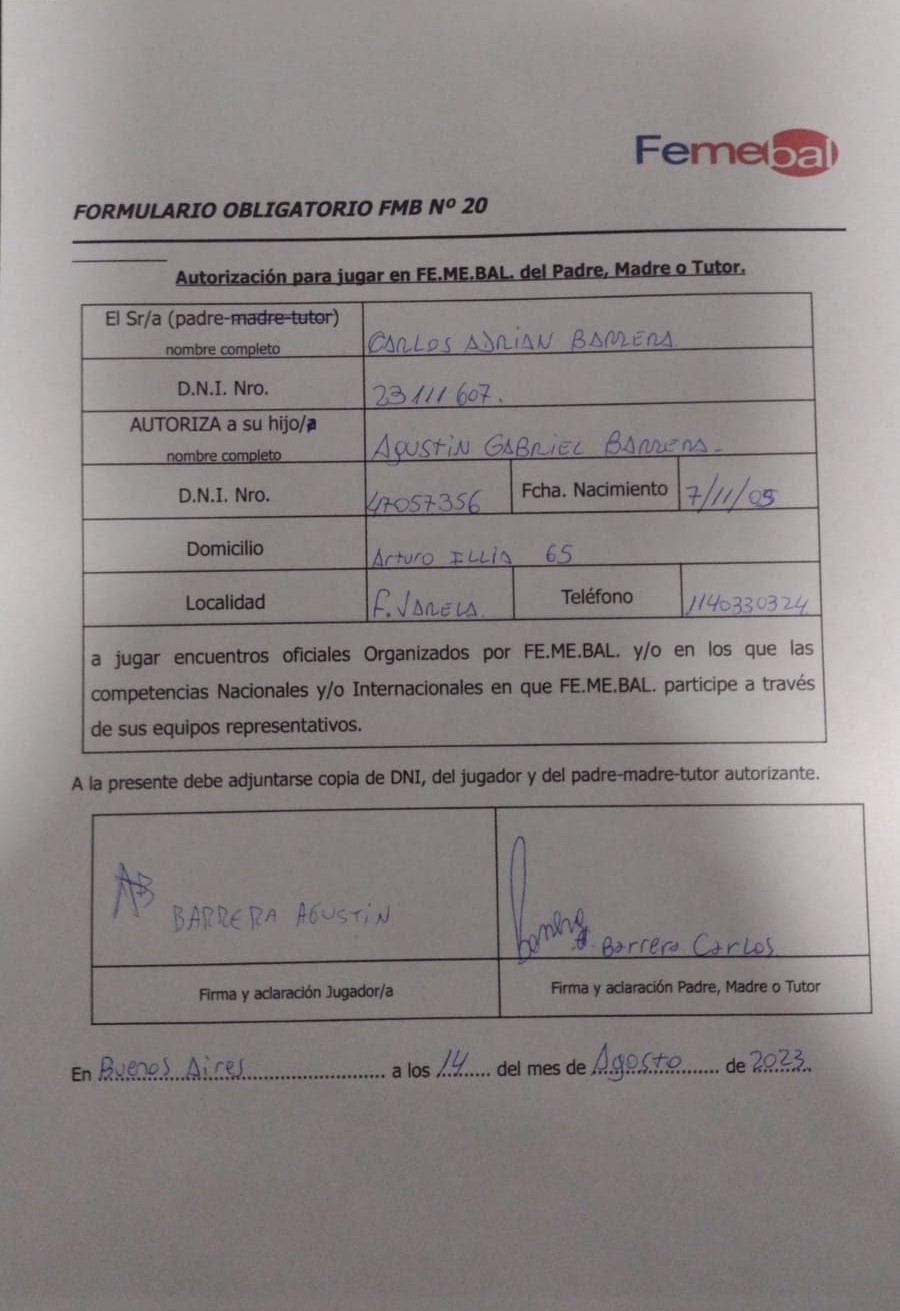 Femebal
FORMULARIO OBLIGATORIO FMB Nº 20
Autorización para jugar en FE.ME.BAL. del Padre, Madre o Tutor.
El Sr/a (padre-madre-tutor)
nombre completo
CARLOS ADRIAN BARRERA
D.N.I. Nro.
23111607.
AUTORIZA a su hijo/a
nombre completo
AGUSTIN GABRIEL BARRERA.
D.N.I. Nro.
47057356
Fcha. Nacimiento
7/11/05
Domicilio
Arturo ILLIA 65
Localidad
F. VARELA.
Teléfono
1140330324
a jugar encuentros oficiales Organizados por FE.ME.BAL. y/o en los que las
competencias Nacionales y/o Internacionales en que FE.ME.BAL. participe a través
de sus equipos representativos.
A la presente debe adjuntarse copia de DNI, del jugador y del padre-madre-tutor autorizante.
AB
BARRERA AGUSTIN
Barrera Carlos
Firma y aclaración Jugador/a
Firma y aclaración Padre, Madre o Tutor
En Buenos Aires a los 14 del mes de Agosto de 2023.